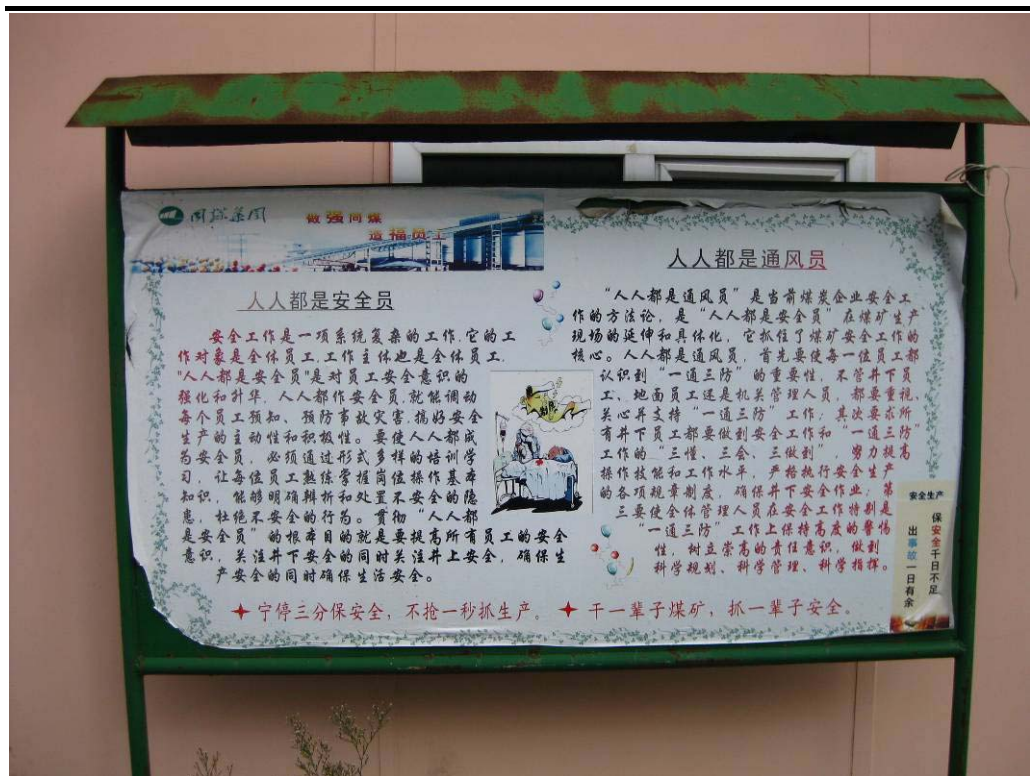 同煤集团
做强同煤
造福员工
人人都是安全员
安全工作是一项系统复杂的工作,它的工
作对象是全体员工,工作主体也是全体员工,
"人人都是安全员"是对员工安全意识的
强化和升华,人人都作安全员,就能调动
每个员工预知、预防事故灾害,搞好安全
生产的主动性和积极性。要使人人都成
为安全员,必须通过形式多样的培训学
习,让每位员工熟练掌握岗位操作基本
知识,能够明确辨析和处置不安全的隐
患,杜绝不安全的行为。贯彻“人人都
是安全员”的根本目的就是要提高所有员工的安全
意识,关注井下安全的同时关注井上安全,确保生
产安全的同时确保生活安全。
人人都是通风员
“人人都是通风员”是当前煤炭企业安全工
作的方法论,是“人人都是安全员”在煤矿生产
现场的延伸和具体化,它抓住了煤矿安全工作的
核心。人人都是通风员,首先要使每一位员工都
认识到“一通三防”的重要性,不管井下员
工、地面员工还是机关管理人员,都要重视、
关心并支持“一通三防”工作;其次要求所
有井下员工都要做到安全工作和“一通三防”
工作的“三懂、三会、三做到”,努力提高
操作技能和工作水平,严格执行安全生产
的各项规章制度,确保井下安全作业;第
三要使全体管理人员在安全工作特别是
“一通三防”工作上保持高度的警惕
性,树立崇高的责任意识,做到
科学规划、科学管理、科学指挥。
安全生产
保安全千日不足
出事故一日有余
宁停三分保安全,不抢一秒抓生产。 干一辈子煤矿,抓一辈子安全。